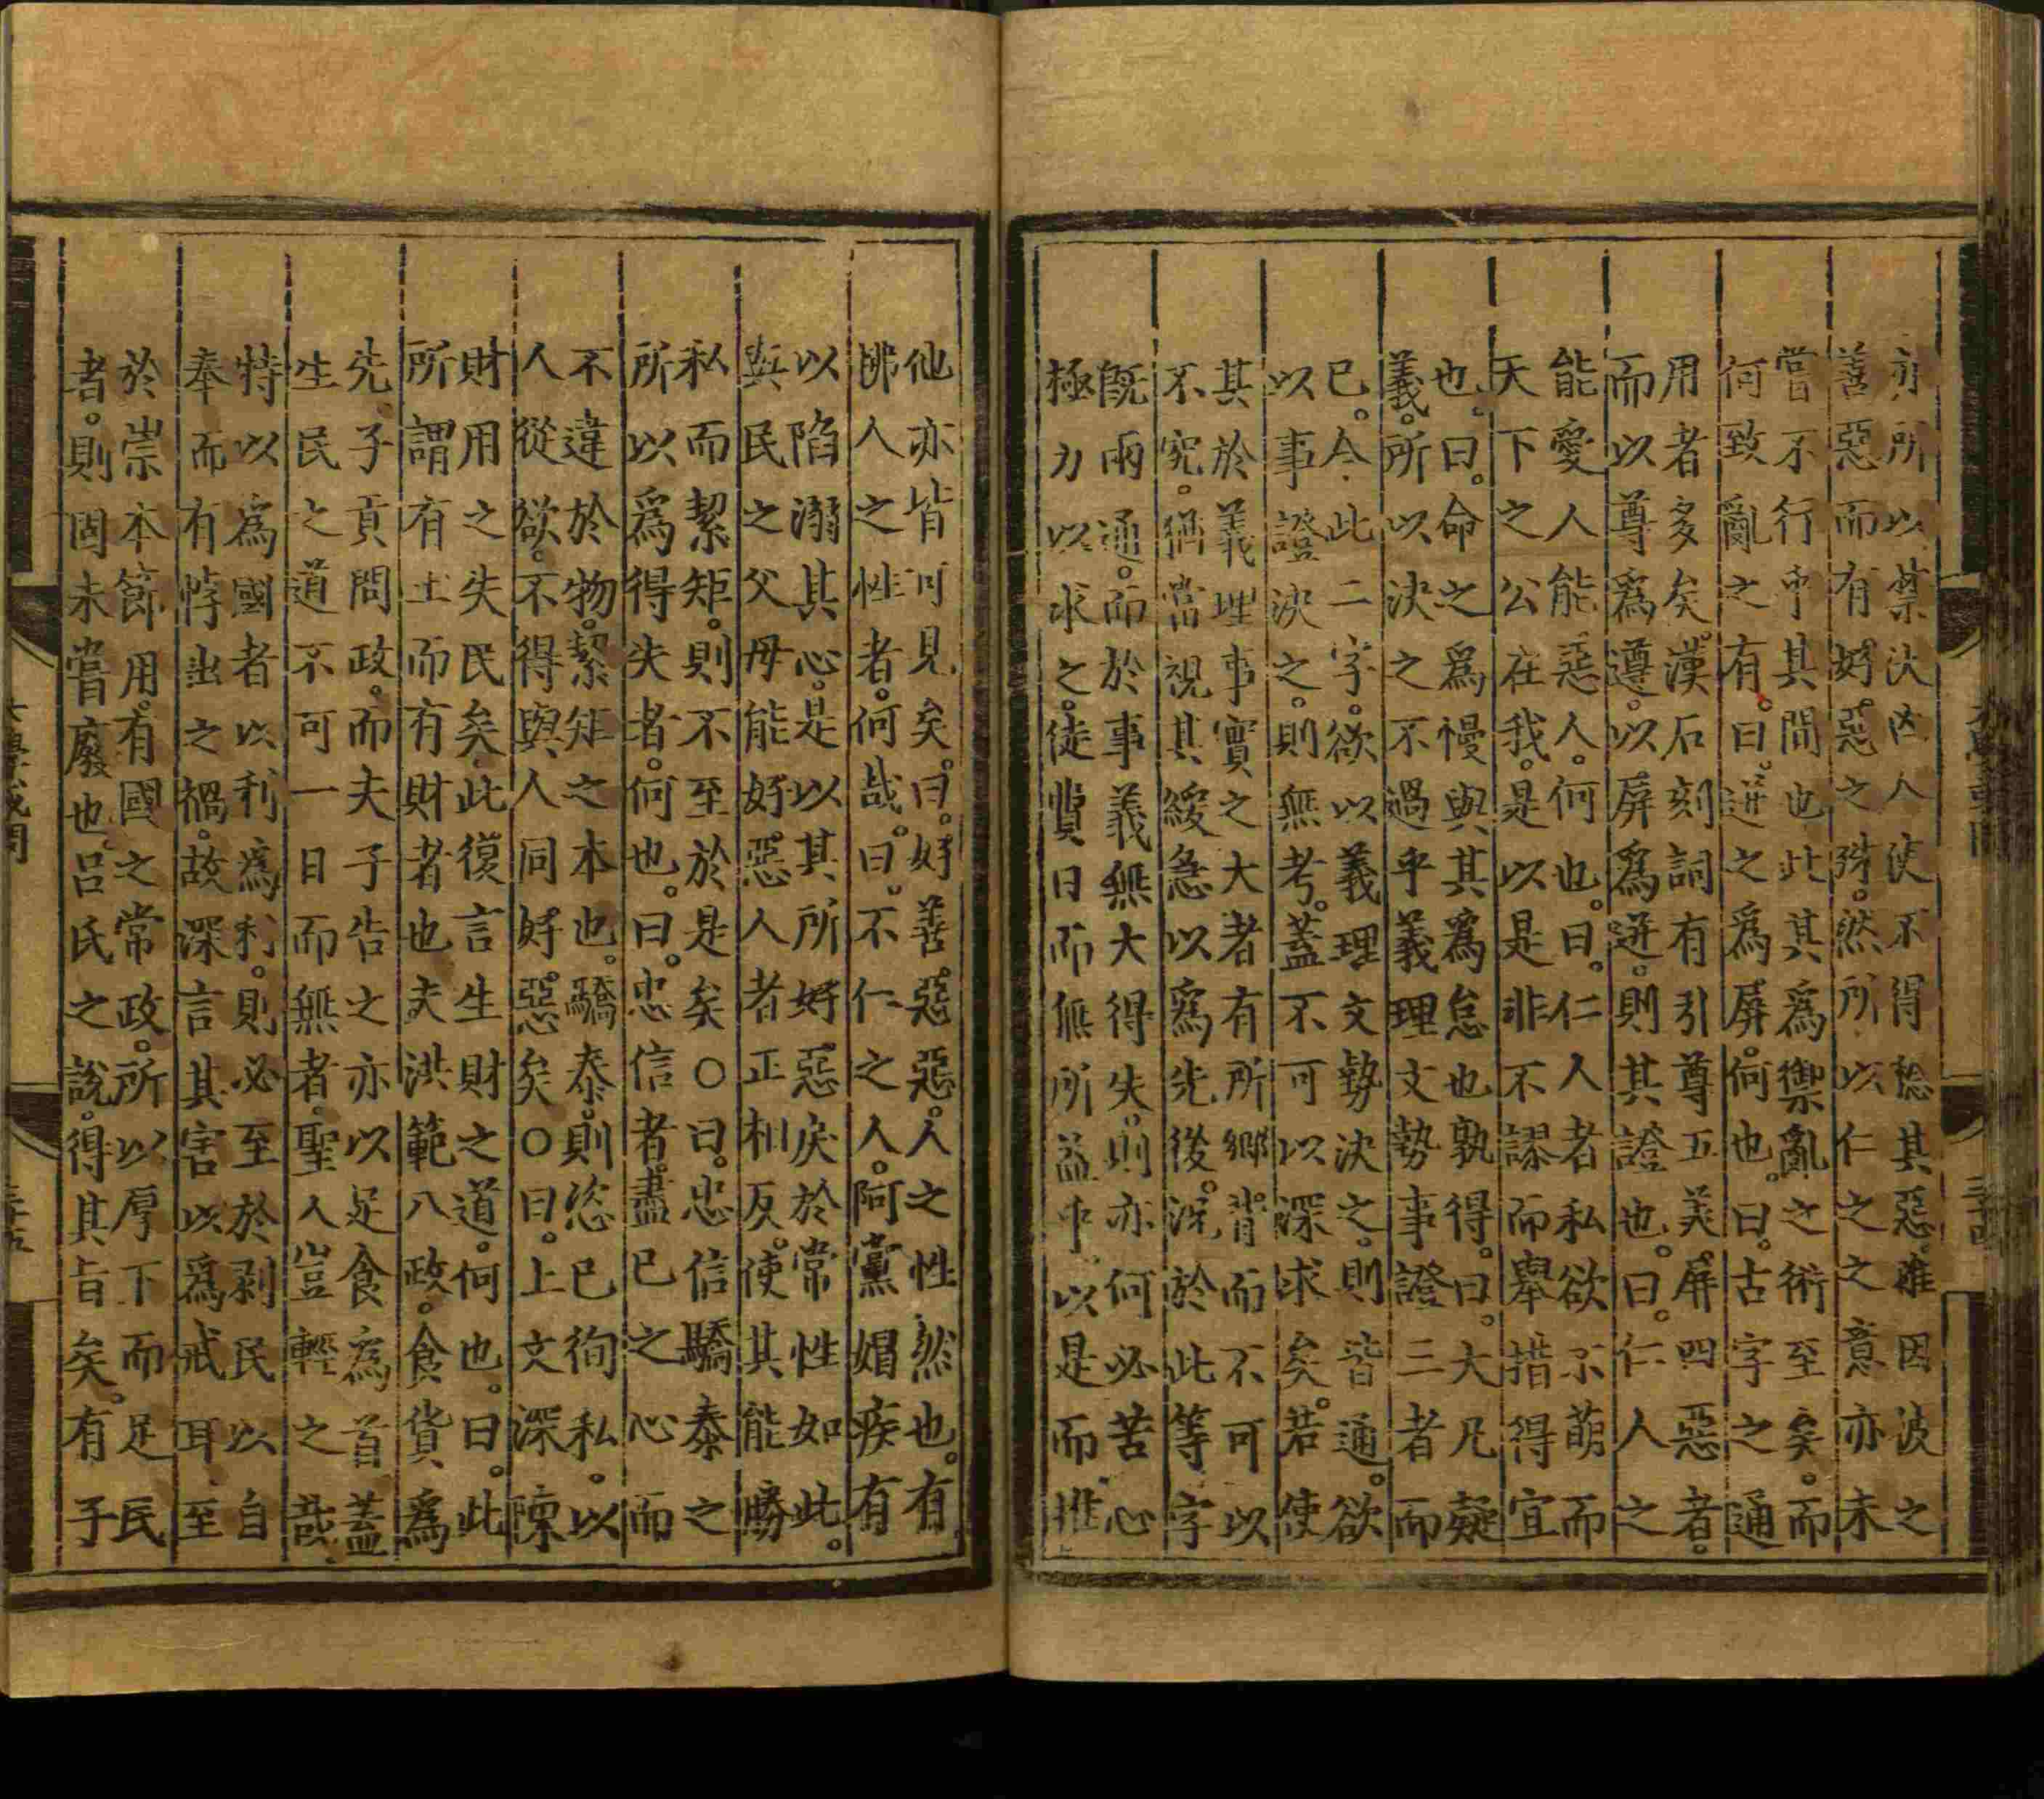 亦所以禁决凶人使不得稔其惡雖因彼之
善惡而有好惡之殊。然所以仁之之意亦未
嘗不行乎其間也此其爲禦亂之術至矣。而
何致亂之有。曰。迸之爲屏。何也。曰。古字之通
用者多矣。漢石刻詞有引尊五美屏四惡者。
而以尊爲遵。以屏爲迸。則其證也。曰。仁人之
能愛人能惡人。何也。曰。仁人者私欲不萌而
天下之公在我。是以是非不謬而舉措得宜
也。曰。命之爲慢與其爲怠也孰得。曰。大凡疑
義。所以决之不過乎義理文勢事證三者而
已。今此二字。欲以義理文勢决之。則皆通。欲
以事證决之。則無考。蓋不可以深求矣。若使
其於義理事實之大者有所鄉背而不可以
不究。猶當視其緩急以爲先後。况於此等字
旣兩通。而於事義無大得失。則亦何必苦心
極力以求之。徒費日而無所益乎。以是而推
他亦皆可見矣。曰。好善惡惡。人之性然也。有
拂人之性者。何哉。曰。不仁之人。阿黨媢疾有
以陷溺其心。是以其所好惡戾於常性如此。
與民之父母能好惡人者正相反。使其能勝
私而絜矩。則不至於是矣○曰。忠信驕泰之
所以爲得失者。何也。曰。忠信者。盡已之心而
不違於物。絜矩之本也。驕泰。則恣已徇私。以
人從欲。不得與人同好惡矣○曰。上文深陳
財用之失民矣此復言生財之道。何也。曰。此
所謂有土而有財者也夫洪範八政。食貨爲
先。子貢問政。而夫子告之亦以足食爲首蓋
生民之道不可一日而無者。聖人豈輕之哉。
特以爲國者以利爲利。則必至於剥民以自
奉而有悖出之禍。故深言其害以爲戒耳至
於崇本節用。有國之常政。所以厚下而足民
者。則固未嘗廢也。呂氏之說。得其旨矣。有子